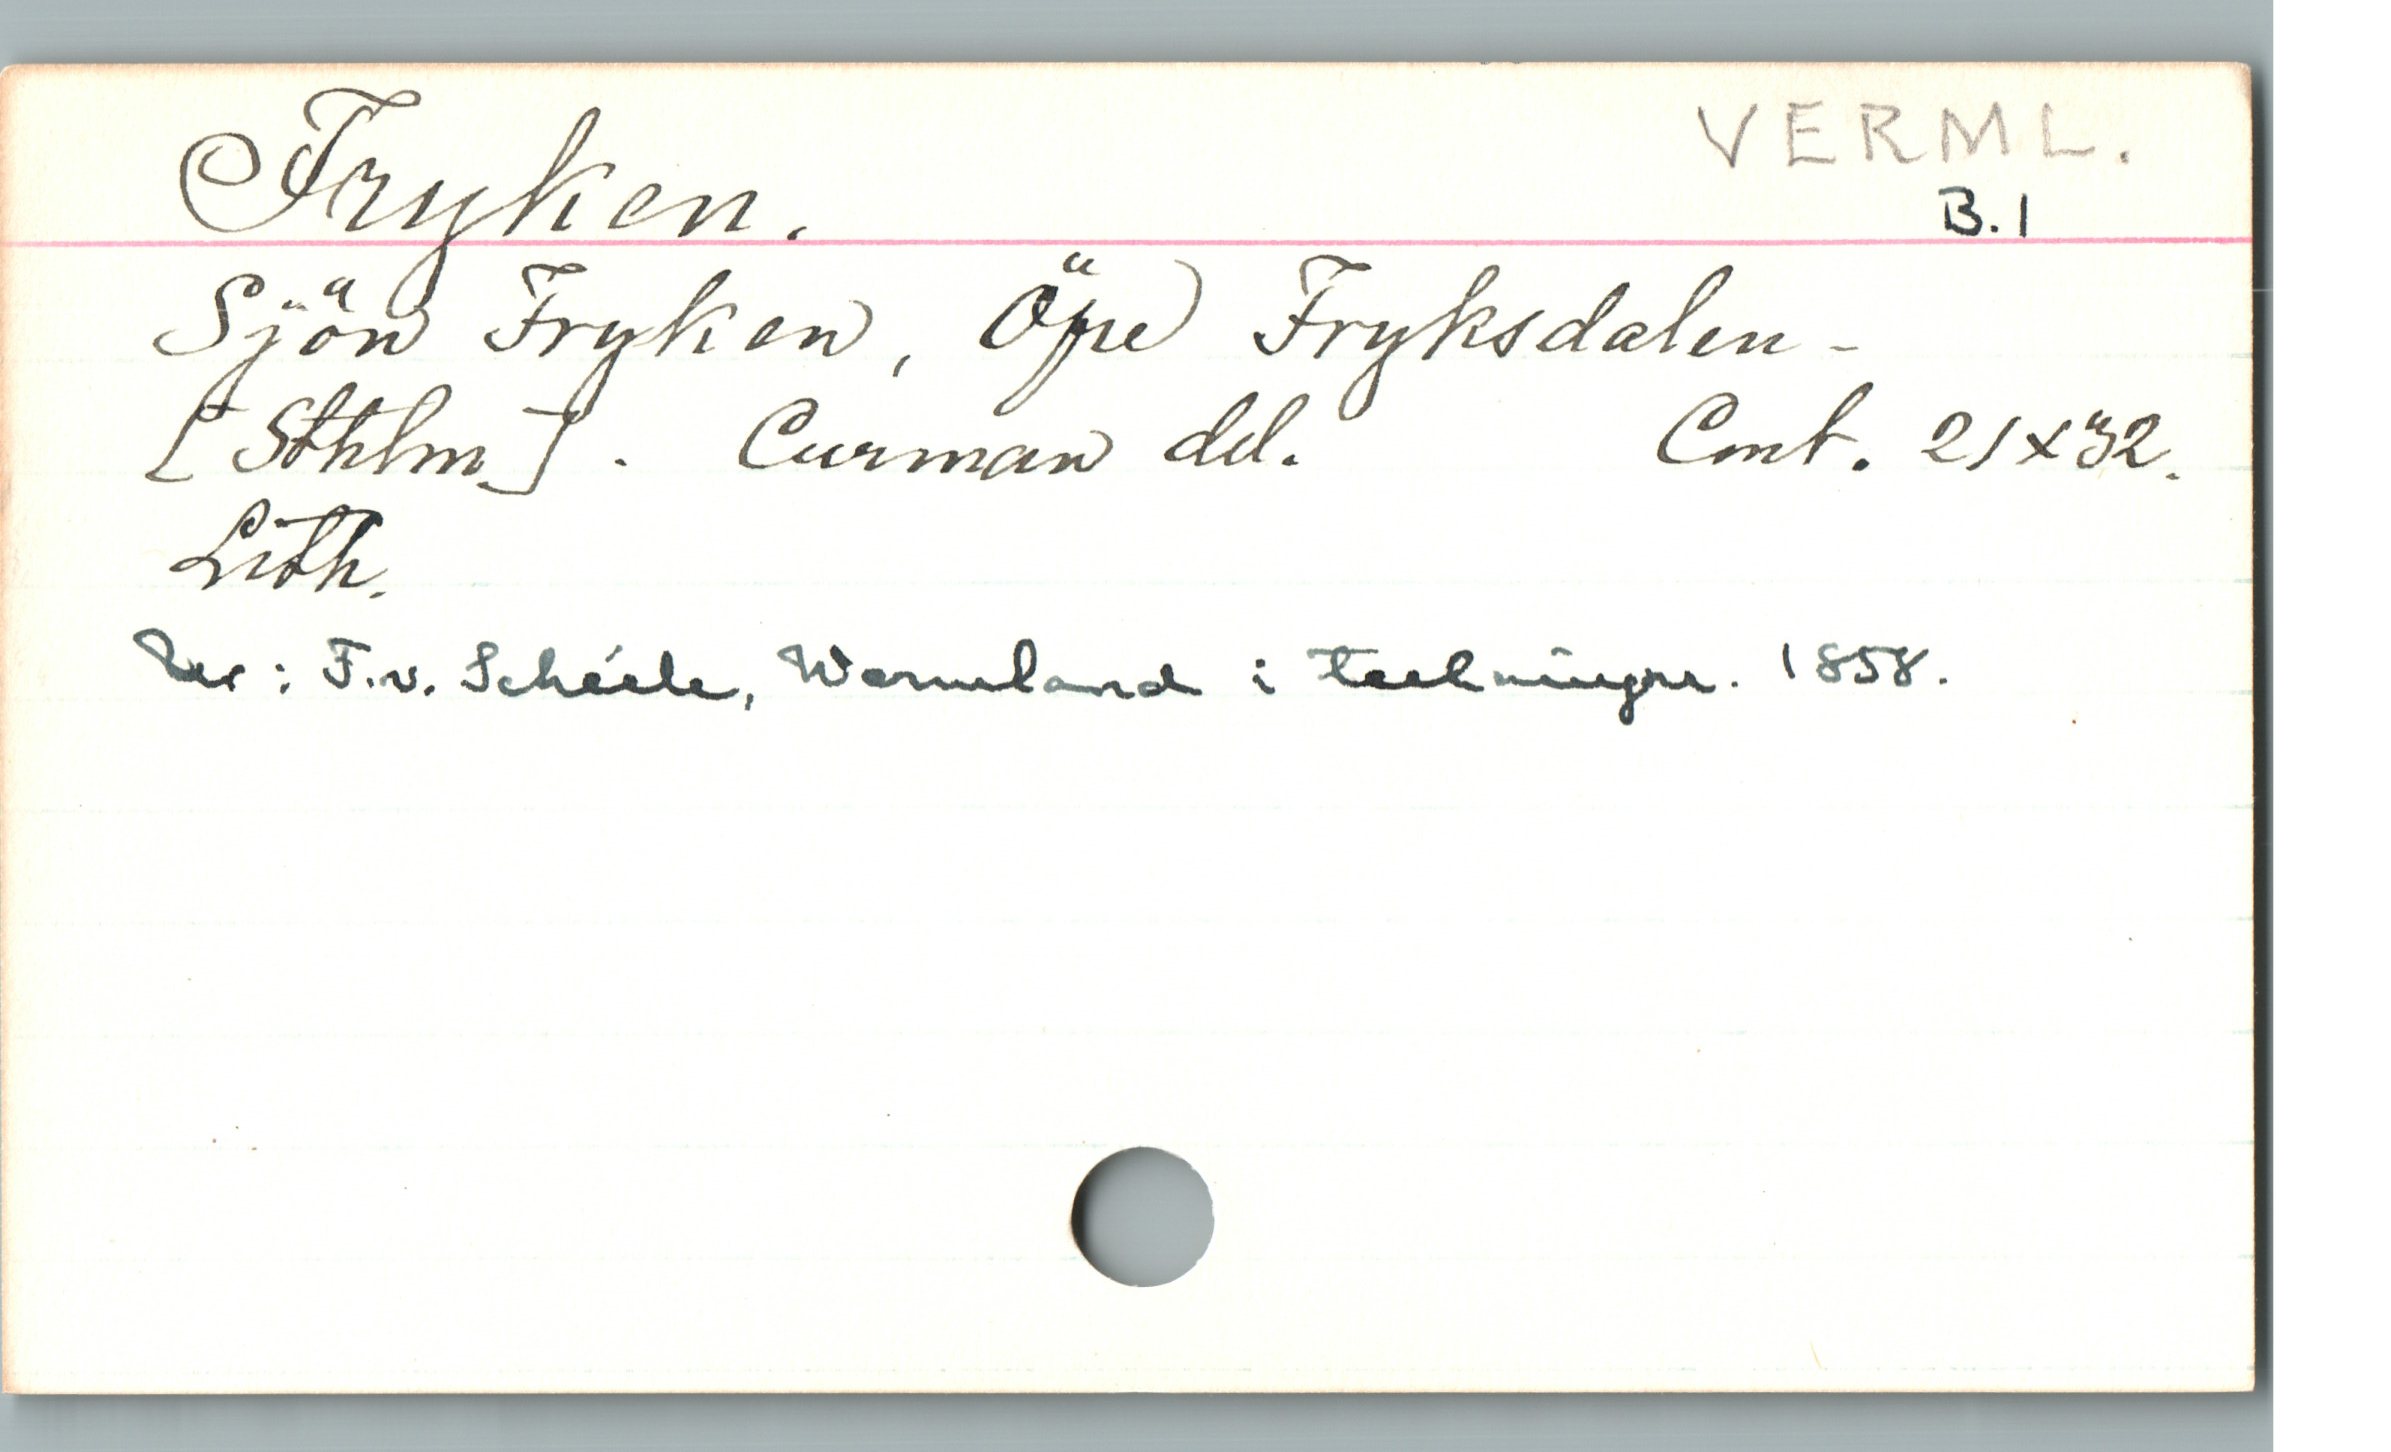 Fryken.
VERML.
B.1
Sjön Fryken, Öfre Fryksdalen -
[Sthlm]. Curman del. Cont. 21x32.
Lith.
Ur: F.v. Schéele, Wermland i teckningar. 1858.